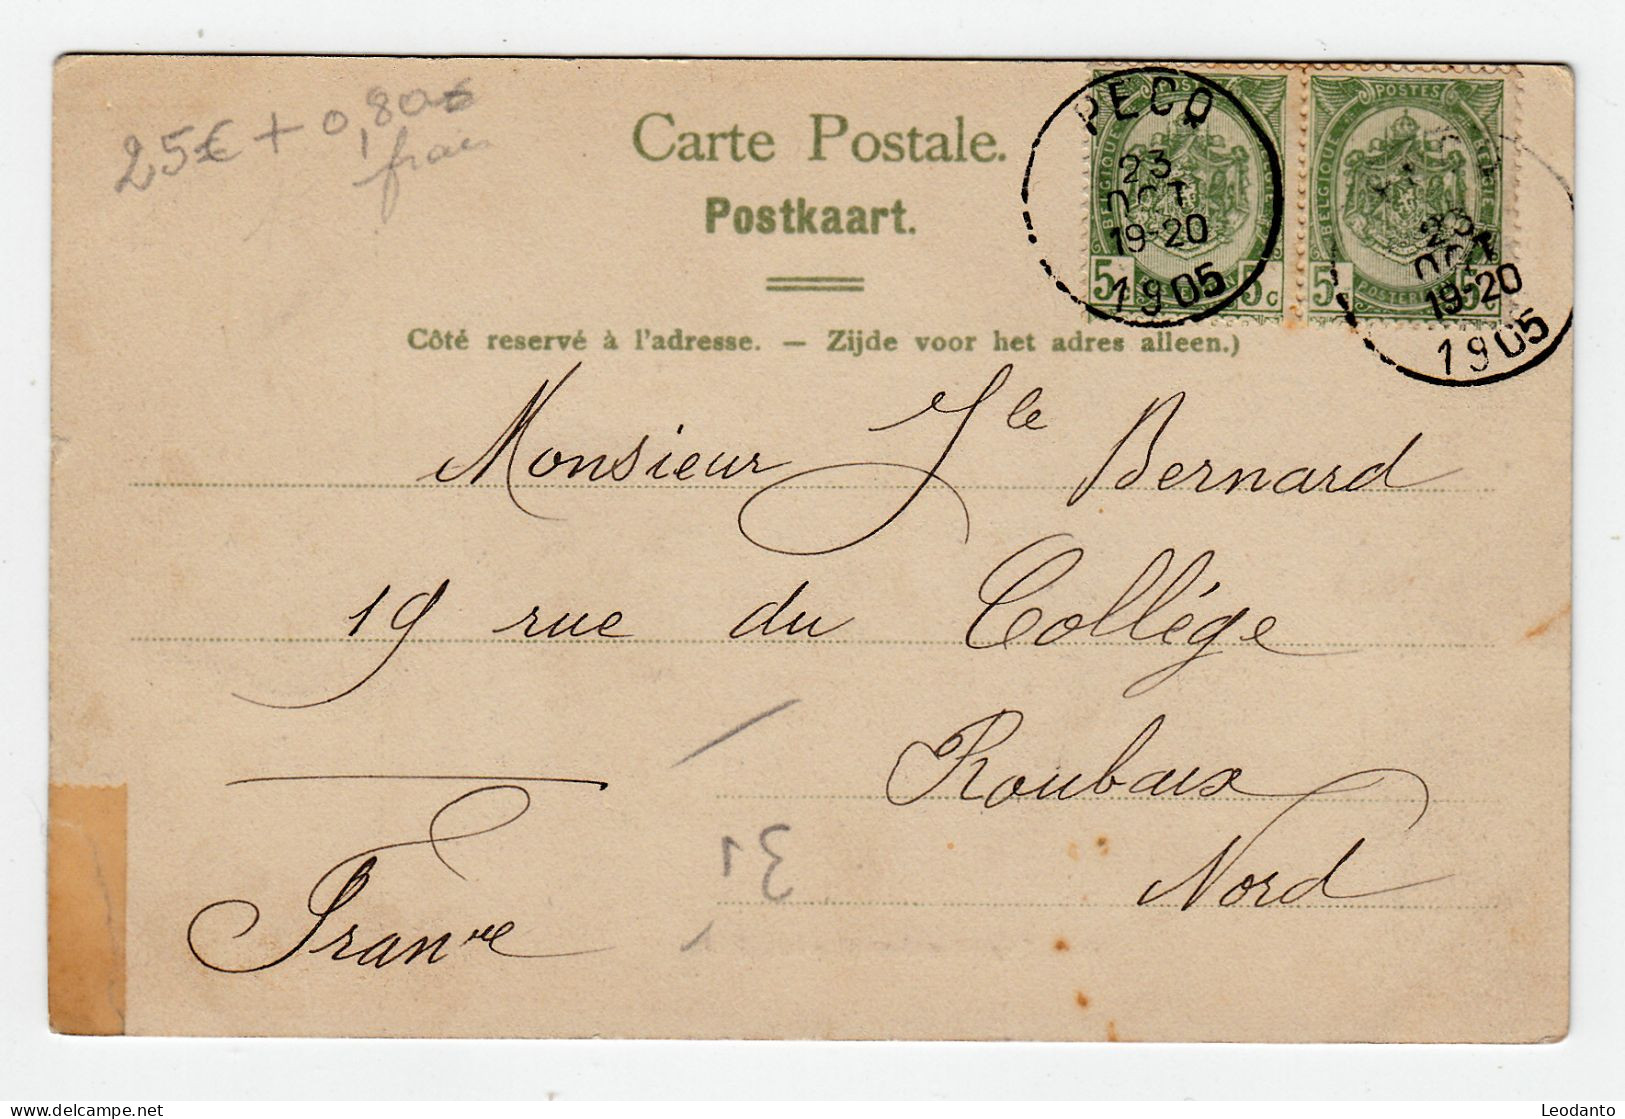 25€ + 0,80€
frais
Carte Postale.
Postkaart.
Côté reservé à l'adresse. — Zijde voor het adres alleen.)
PECQ
23
OCT
19-20
1905
POSTES
BELGIQUE
5c 5c
POSTES
BELGIQUE BELGIE
5c 5c
POSTERIJEN
23
OCT
19-20
1905
Monsieur Jle Bernard
19 rue du Collége
Roubaix
Nord
France
31
delcampe.net
Leodanto